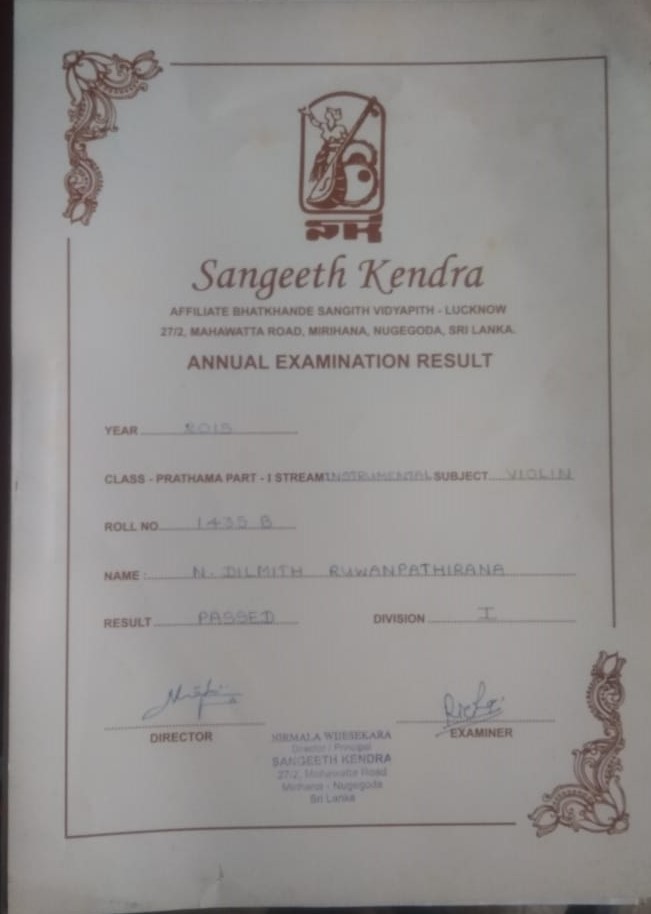 Sangeeth Kendra
AFFILIATE BHATKHANDE SANGITH VIDYAPITH - LUCKNOW
27/2, MAHAWATTA ROAD, MIRIHANA, NUGEGODA, SRI LANKA.
ANNUAL EXAMINATION RESULT
YEAR 2015
CLASS - PRATHAMA PART - I STREAM INSTRUMENTAL SUBJECT VIOLIN
ROLL NO 1435 B
NAME : N. DILMITH RUWANPATHIRANA
RESULT PASSED DIVISION I
DIRECTOR EXAMINER
NIRMALA WIJESEKARA
Director / Principal
SANGEETH KENDRA
27/2, Mahawatta Road
Mirihana - Nugegoda
Sri Lanka